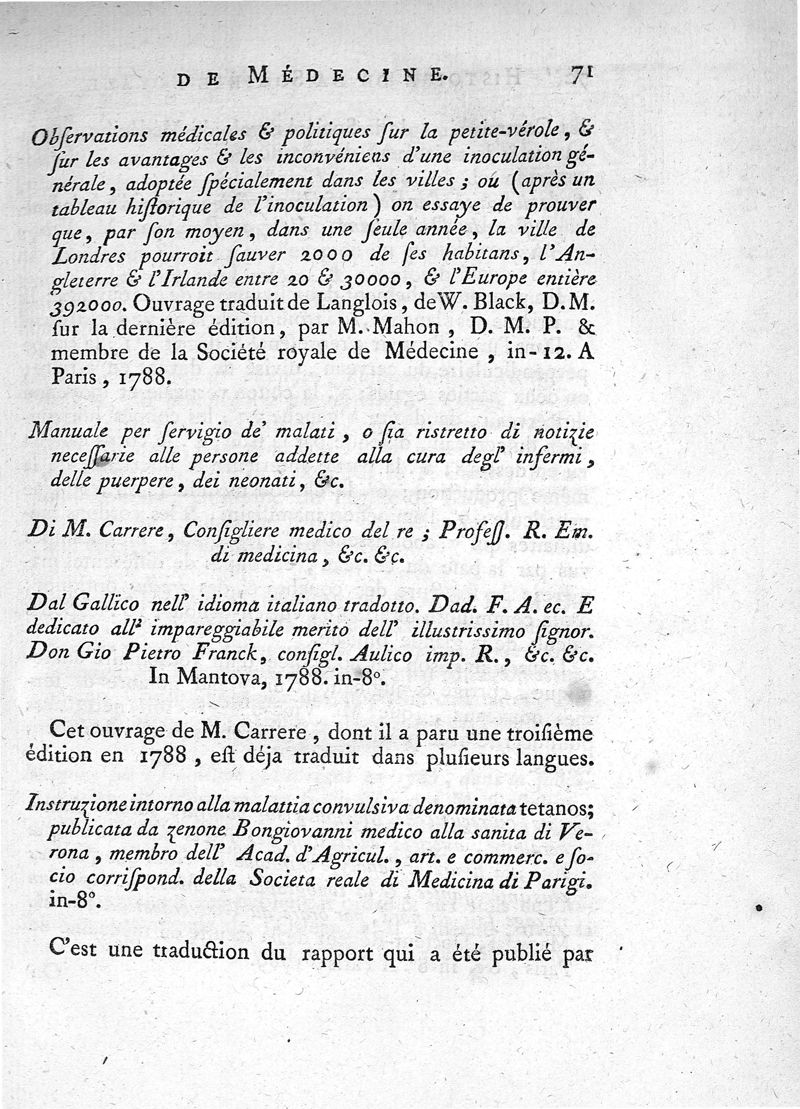 DE MÉDECINE. 71
Obſervations médicales & politiques ſur la petite-vérole, &
ſur les avantages & les inconvéniens d'une inoculation gé-
nérale, adoptée ſpécialement dans les villes; où (après un
tableau hiſtorique de l'inoculation) on essaye de prouver
que, par ſon moyen, dans une ſeule année, la ville de
Londres pourroit ſauver 2000 de ſes habitans, l'An-
gleterre & l'Irlande entre 20 & 30000, & l'Europe entière
392000. Ouvrage traduit de Langlois, de W. Black, D. M.
ſur la dernière édition, par M. Mahon, D. M. P. &
membre de la Société royale de Médecine, in-12. A
Paris, 1788.
Manuale per ſervigio de' malati, o ſia ristretto di notizie
neceſſarie alle persone addette alla cura degl' infermi,
delle puerpere, dei neonati, &c.
Di M. Carrere, Conſigliere medico del re; Profeſſ. R. Em.
di medicina, &c. &c.
Dal Gallico nell' idioma italiano tradotto. Dad. F. A. ec. E
dedicato all' impareggiabile merito dell' illustrissimo ſignor.
Don Gio Pietro Franck, conſigl. Aulico imp. R., &c. &c.
In Mantova, 1788. in-8°.
Cet ouvrage de M. Carrere, dont il a paru une troiſième
édition en 1788, eſt déja traduit dans pluſieurs langues.
Instruzione intorno alla malattia convulsiva denominata tetanos;
publicata da zenone Bongiovanni medico alla sanita di Ve-
rona, membro dell' Acad. d'Agricul., art. e commerc. e ſo-
cio corriſpond. della Societa reale di Medicina di Parigi.
in-8°.
C'est une traduction du rapport qui a été publié par